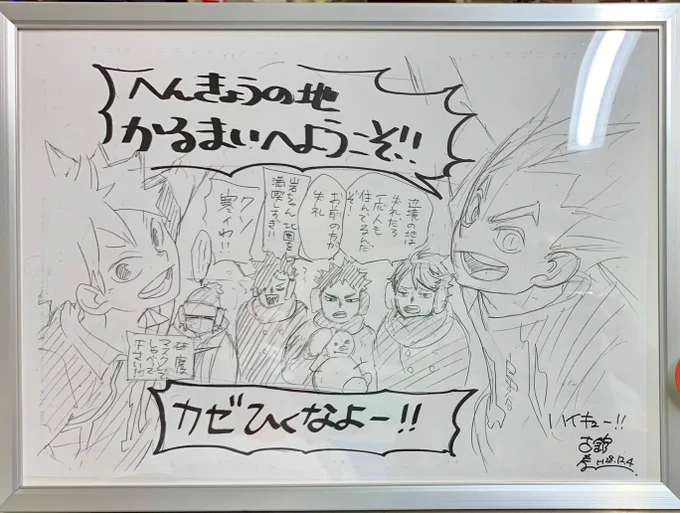 へんきょうの地
かるまいへようこそ!!
辺境の地は
失礼だろ
一応人も
住んでるんだ
ぞ!
お前の方が
失礼
岩ちゃん北国を
満喫しすぎ!!
クソ
寒イわ!!
研磨は
マスクとって
しゃべって
下さい!!
カゼひくなよー!!
ハイキュー!!
古舘
H28.12.4